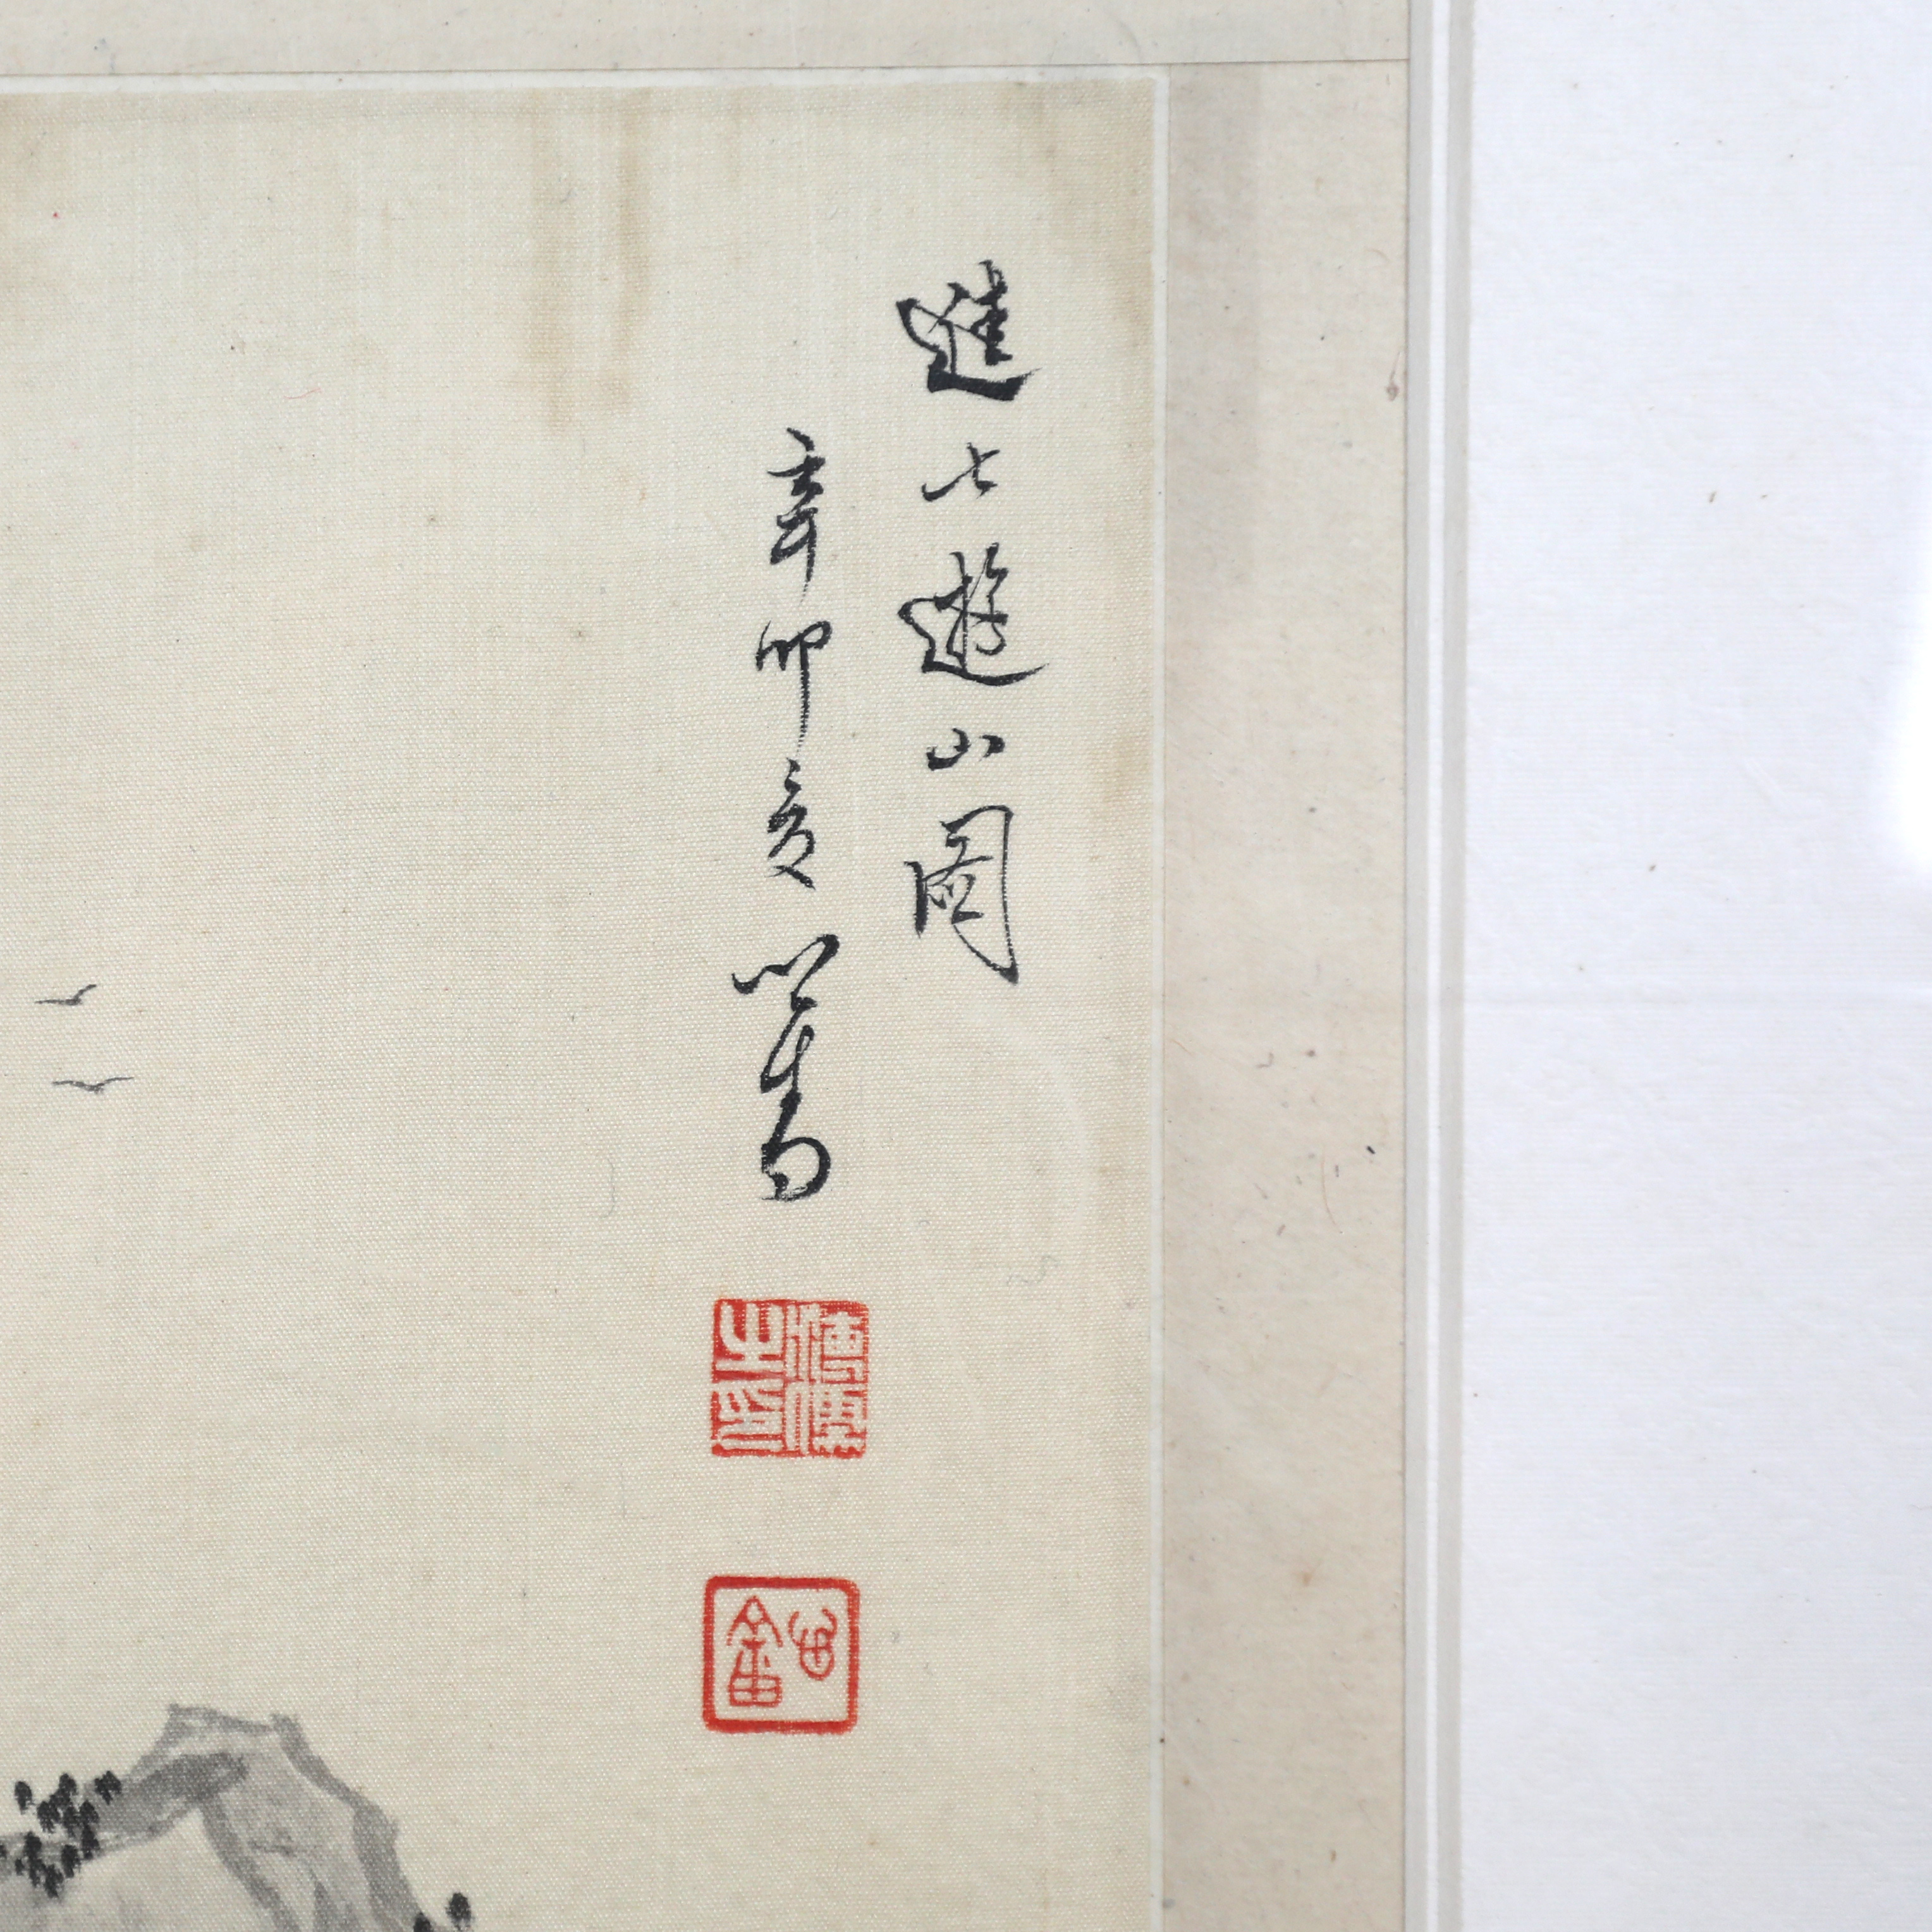 進士遊山圖
辛卯夏 心畬
溥儒之印